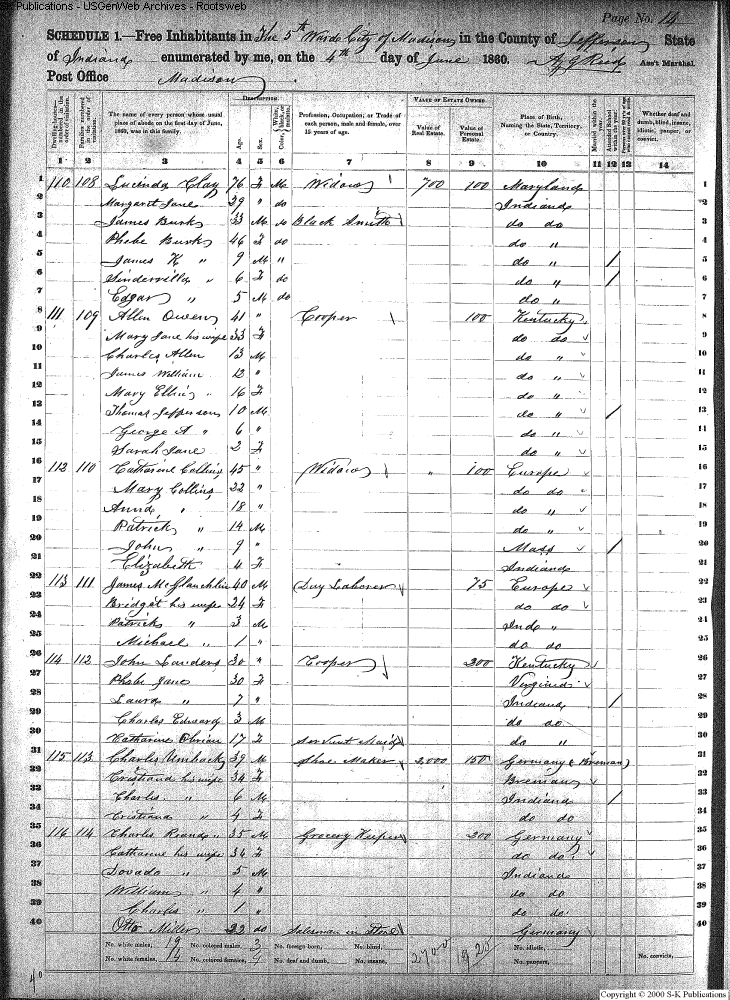 S-K Publications - USGenWeb Archives - Rootsweb
Page No. 14
SCHEDULE 1.—Free Inhabitants in The 5th Ward City of Madison in the County of Jefferson State
of Indiana enumerated by me, on the 4th day of June 1860. Ass't Marshal.
Post Office Madison
Dwelling-houses—numbered in the order of visitation.
Families numbered in the order of visitation.
The name of every person whose usual place of abode on the first day of June, 1860, was in this family.
DESCRIPTION.
Age.
Sex.
Color, White, black, or mulatto.
Profession, Occupation, or Trade of each person, male and female, over 15 years of age.
VALUE OF ESTATE OWNED.
Value of Real Estate.
Value of Personal Estate.
Place of Birth, Naming the State, Territory, or Country.
Married within the year.
Attended School within the year.
Whether deaf and dumb, blind, insane, idiotic, pauper, or convict.
1 2 3 4 5 6 7 8 9 10 11 12 13 14
1 110 108 Lucinda Clay 76 F M Widow 700 100 Maryland 1
2 Margaret Jane 39 " do Indiana 2
3 James Burk 33 M do Black Smith do do 3
4 Phebe Burk 46 F do do " 4
5 James K " 9 M " do " / 5
6 Sindervilla " 6 F do do " / 6
7 Edgar " 5 M do do " 7
8 111 109 Allen Owens 41 " Cooper 100 Kentucky 8
9 Mary Jane his wife 33 F do do 9
10 Charles Allen 13 M do " 10
11 James William 12 " do " 11
12 Mary Ellen " 16 F do " 12
13 Thomas Jefferson 10 M do " / 13
14 George A " 6 " do " 14
15 Sarah Jane 2 F do " 15
16 112 110 Catharine Collins 45 " Widow " 100 Europe 16
17 Mary Collins 22 " do do 17
18 Anna " 18 " do " 18
19 Patrick " 14 M do " 19
20 John " 9 " Mass / 20
21 Elizabeth 4 F Indiana 21
22 113 111 James McGlauchlin 40 M Day Laborer 75 Europe 22
23 Bridget his wife 24 F do do 23
24 Patrick " 3 M Ind " 24
25 Michael " 1 " do do 25
26 114 112 John Landers 30 " Cooper 200 Kentucky 26
27 Phebe Jane 30 F Virginia 27
28 Laura " 7 " Indiana / 28
29 Charles Edward 3 M do do 29
30 Catharine Obrian 17 F Servent Maid do " 30
31 115 113 Charles Umhack 39 M Shoe Maker 2,000 150 Germany (Breman) 31
32 Cristiana his wife 34 F Breman 32
33 Charles " 6 M Indiana / 33
34 Cristiana " 4 F do do 34
35 116 114 Charles " 35 M Grocery Keeper 200 Germany 35
36 Catharine his wife 34 F do do 36
37 " 5 M Indiana 37
38 William " 4 " do do 38
39 Charles " 1 " do do 39
40 Otto Miller 22 do Salesman in Store Germany 40
No. white males, 19 No. colored males, 3 No. foreign born, No. blind, 2700 1925 No. idiotic, No. convicts,
No. white females, 14 No. colored females, 4 No. deaf and dumb, No. insane, No. paupers,
Copyright © 2000 S-K Publications